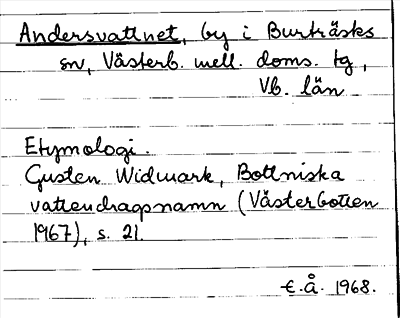 Andersvattnet, by i Burträsks
sn, Västerb. mell. doms. tg,
Vb. län
Etymologi.
Gusten Widmark, Bottniska
vattendragsnamn (Västerbotten
1967), s. 21.
E.Å. 1968.